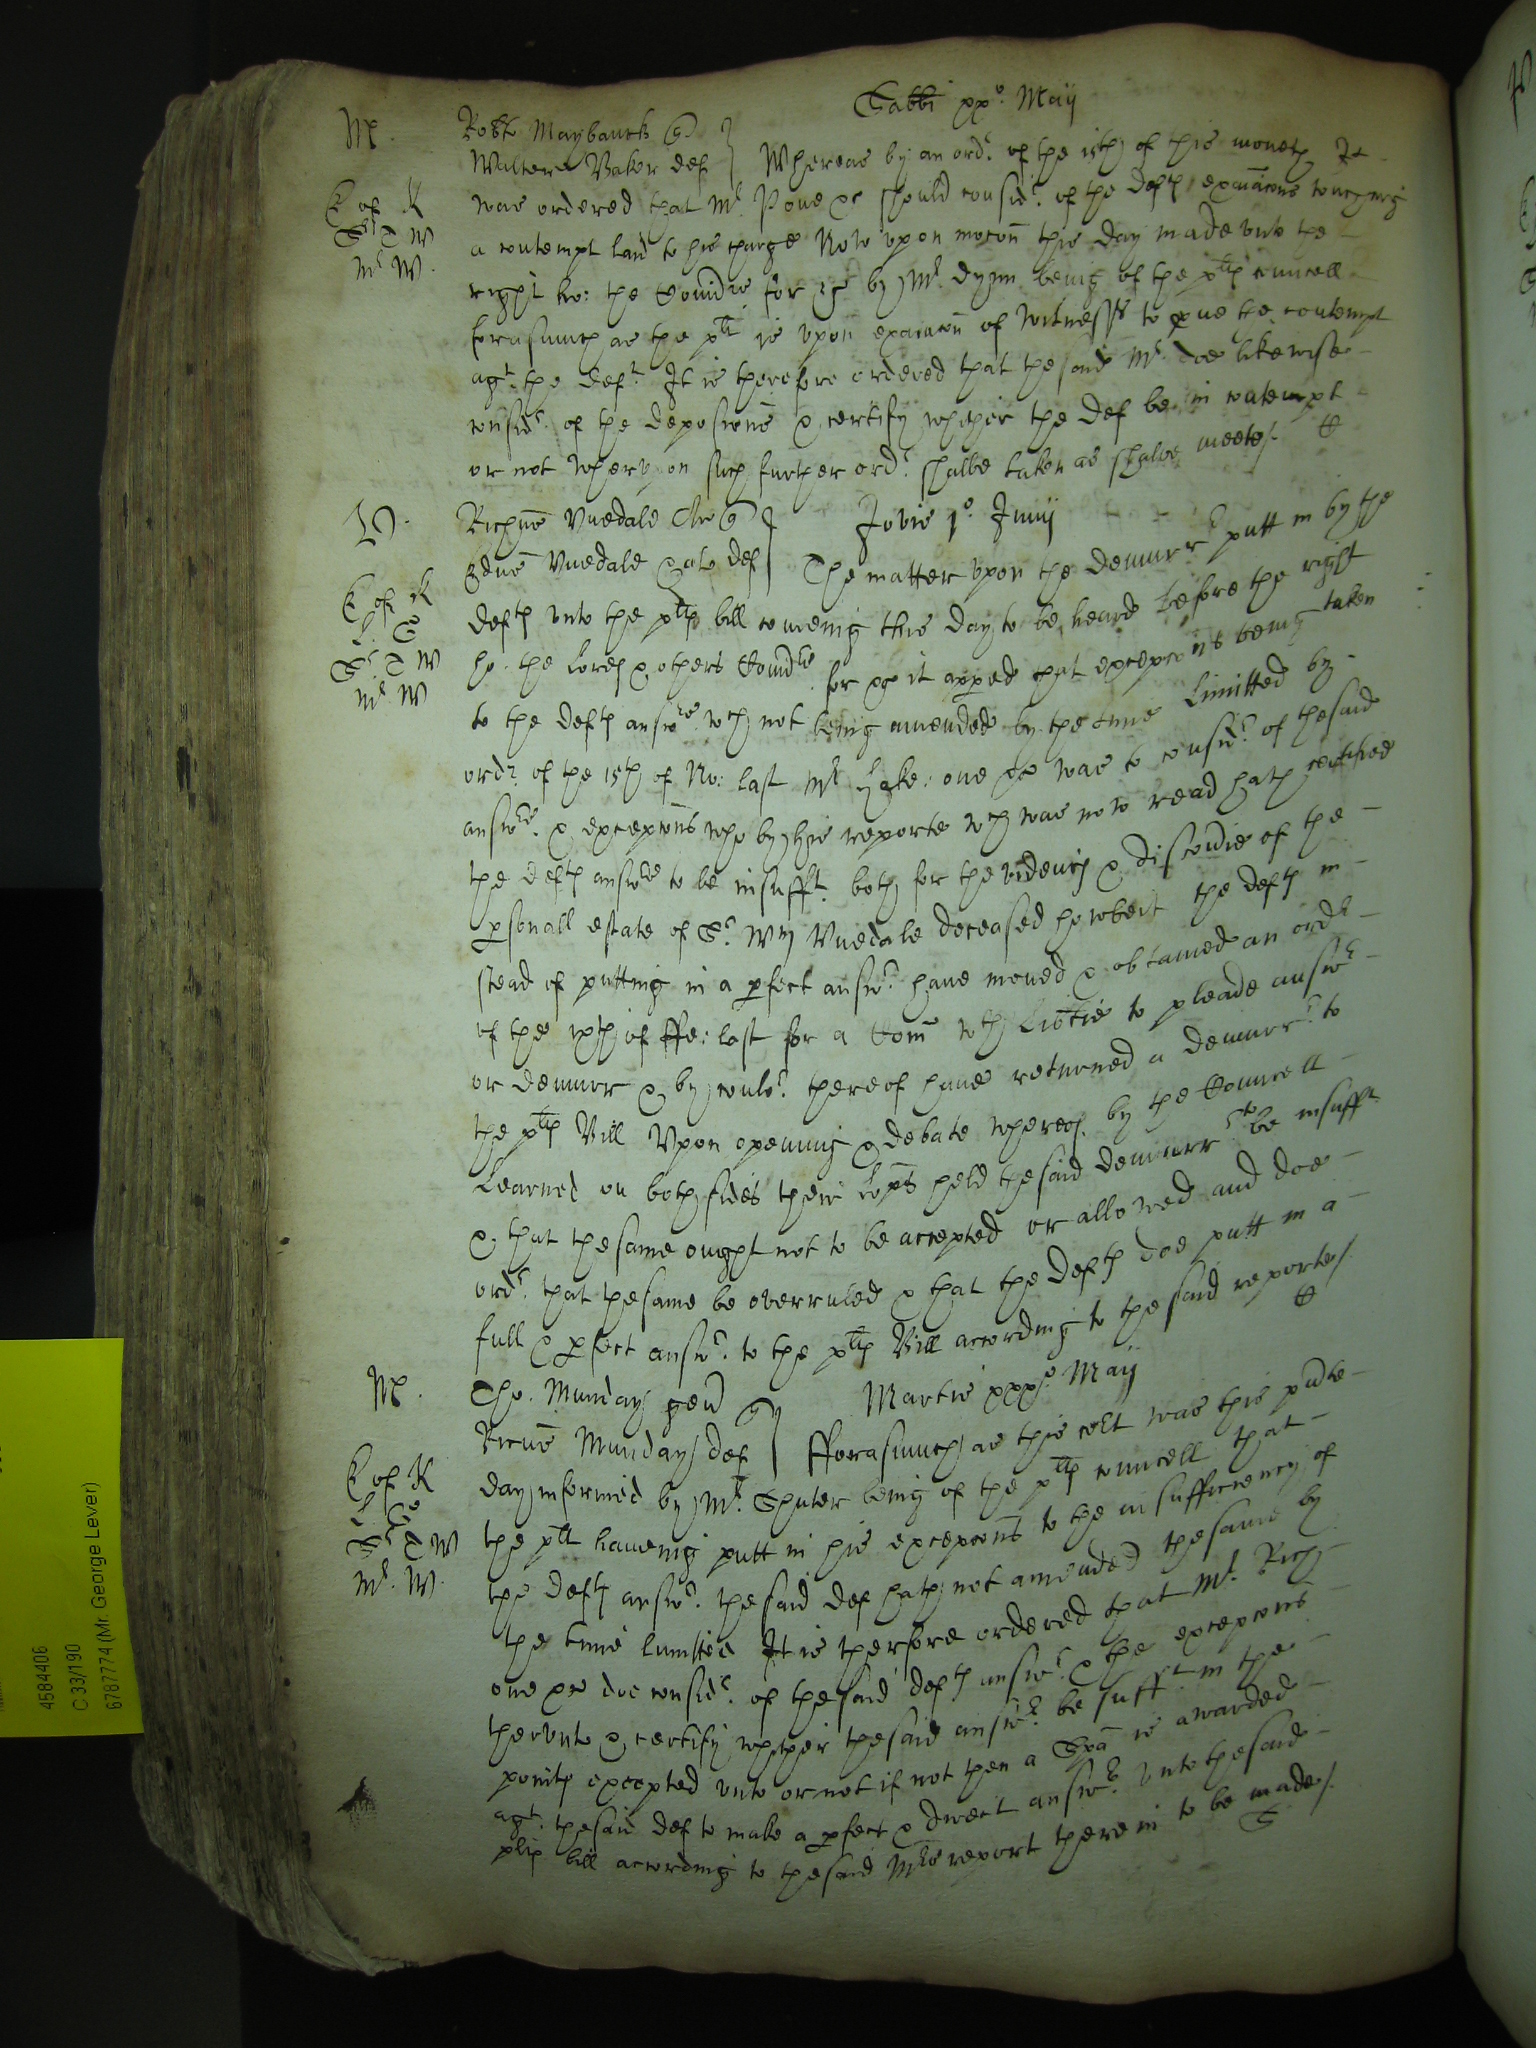 Sabbi xx.º Maij
M.
Robte Maybanck q
Walterus Baker def
Whereas by an ordr. of the 15th of this moneth It
E of K
Sr T W
Mr W.
was ordered that Mr. Pone &c should considr. of the defts examinacons touching
a contempt laid to his charge Now upon mocon this day made unto the
right ho: the Comrs for &c by Mr being of the plts councell
forasmuch as the plt is upon examinacon of witnesses to prove the contempt
agt. the deft. It is therefore ordered that the said Mr. doe likewise
considr. of the deposicons & certify whether the def be in contempt
or not wherupon such further ordr. shalbe taken as shalbe meete/.
V.
Richus Vuedale Ar q
Jovis 1º Junij
Edus Vuedale & al def
The matter upon the demurrr putt in by the
E of K
L. G
Sr T W
Mr W
defts unto the plts bill comeing this day to be heard before the right
ho. the lords & others Comrs for &c it appeed that excepcons being taken
to the defts answre wch not being amended by the time limitted by
ordr. of the 15th of No: last Mr one &c was to considr. of the said
answre. & excepcons who by his reporte wch was now read hath certified
the defts answre to be insufft. both for the & of the
psonall estate of Sr. Wm Vuedale deceased howbeit the defts in
stead of putting in a pfect answr. have moved & obtained an ordr
of the of ffe: last for a Com wth libtie to pleade answr
or demurr & by coulr. thereof have returned a demurrr. to
the plts Bill Upon opening & debate whereof by the Councell
Learned on both sides their Lopps held the said demurrr to be insufft
& that the same ought not to be accepted or allowed and doe
ordr. that the same be overruled & that the defts doe putt in a
full & pfect answr. to the plts Bill according to the said reporte/.
M.
Tho. Munday gen q
Martis xxxº. Maij
Ricus Munday def
fforasmuch as this cort was this pnte
E of K
L. G
Sr T W
Mr. W.
day informed by Mr. Shuter being of the plts councell that
the plt haveing putt in his excepcons to the insufficiency of
the defts answr. the said def hath not amended the same by
the time limitted It is therfore ordered that Mr. Rich
one &c doe considr. of the said defts answr. & the excepcons
therunto & certify whether the said answr. be sufft. in the
points excepted unto or not if not then a Spa is awarded
agt. the said def to make a pfect & direct answr. unto the said
plts bill according to the said Mrs report therein to be made/.
4584406
C 33/190
6787774 (Mr. George Lever)